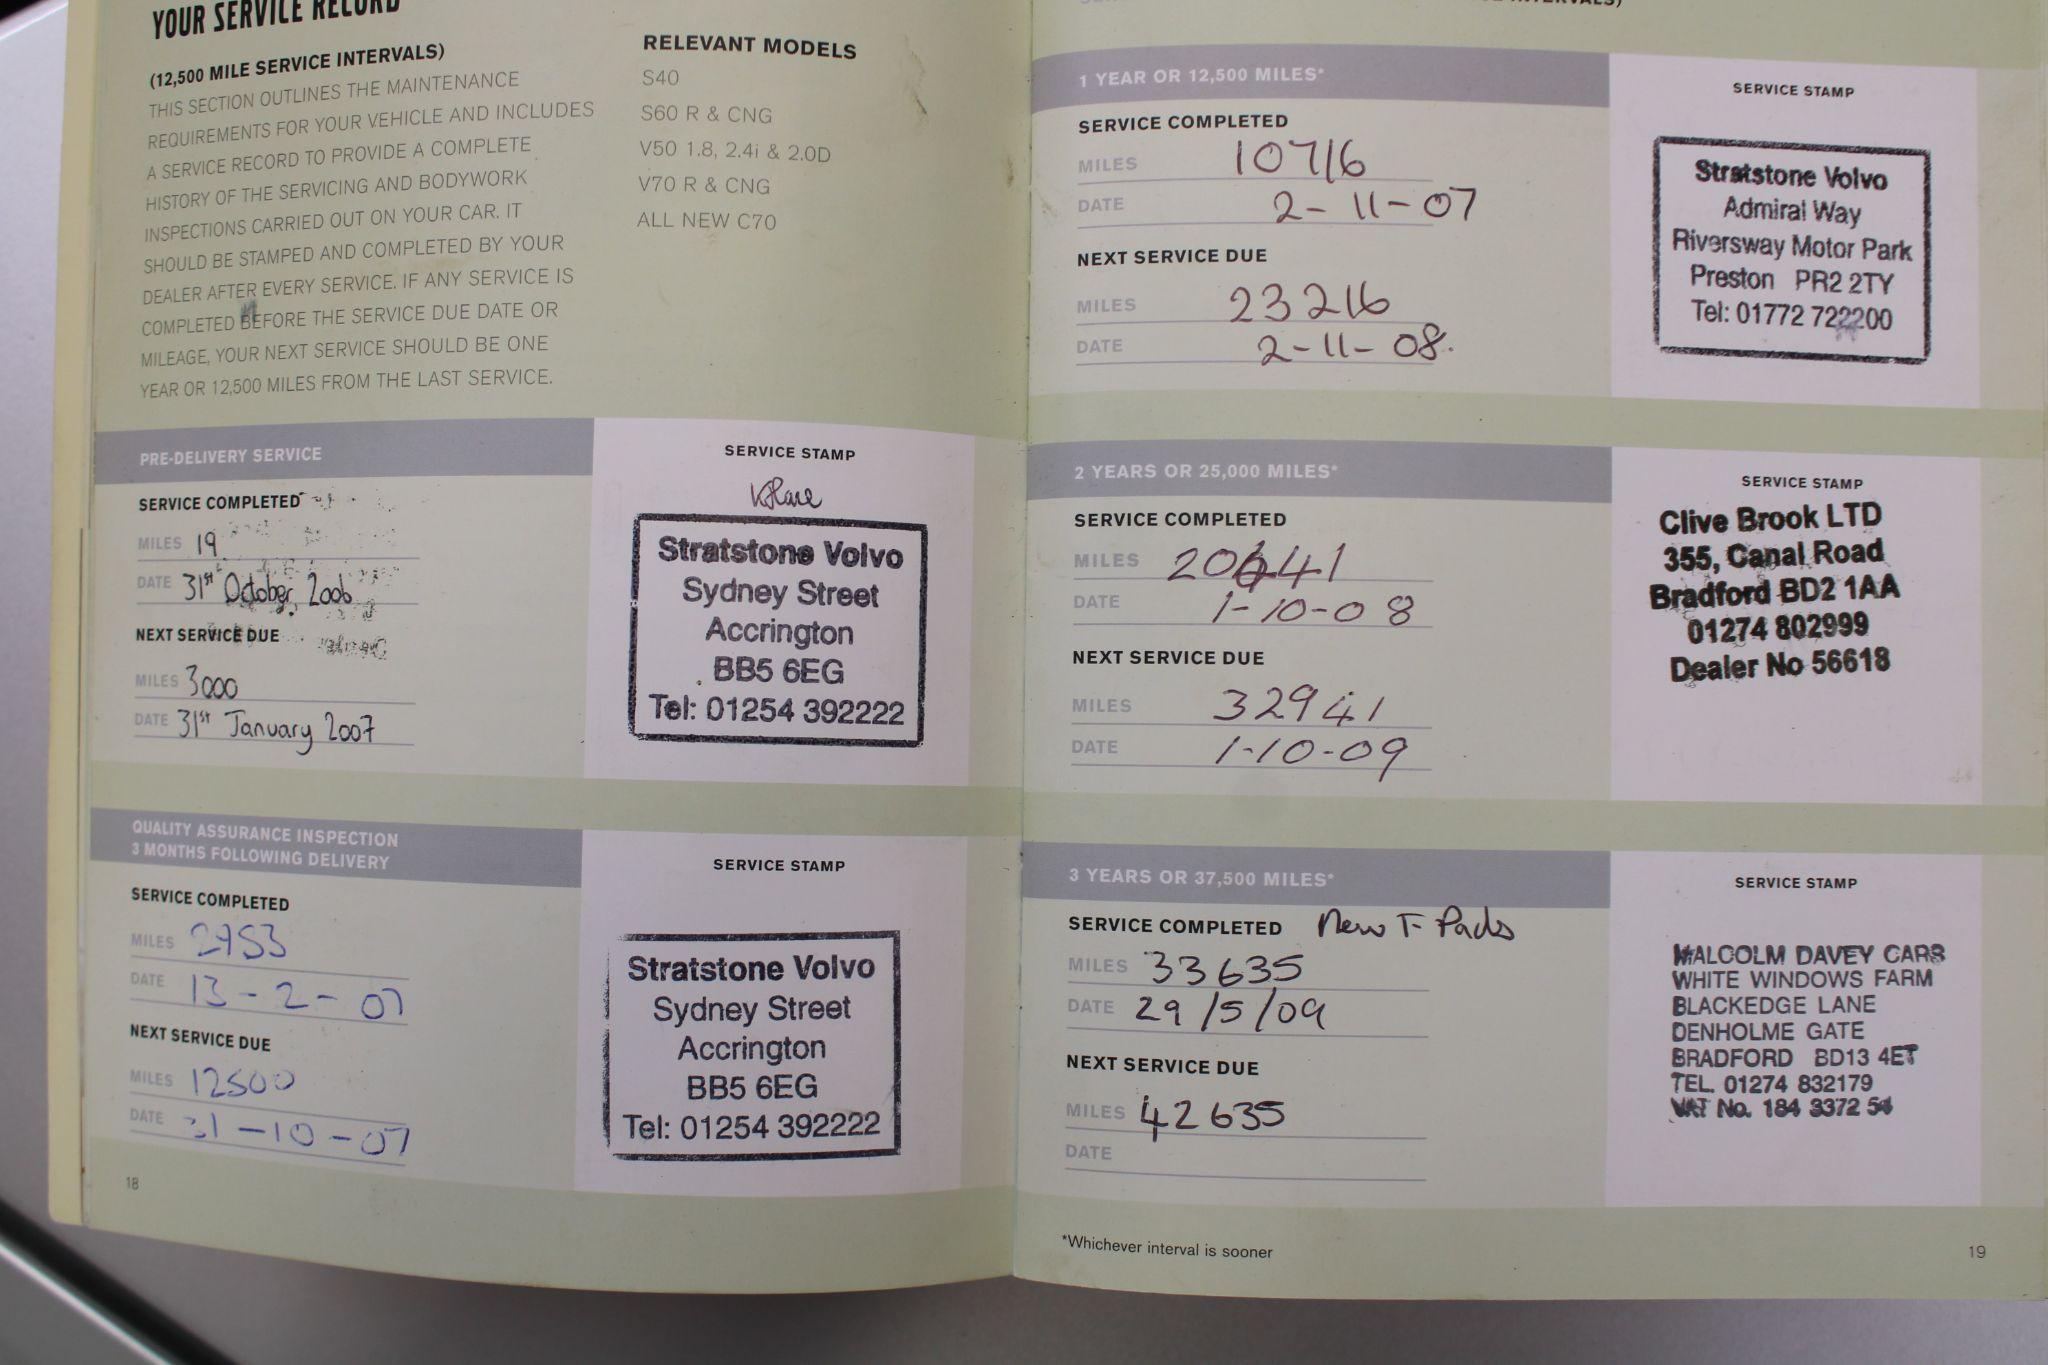 YOUR SERVICE RECORD
(12,500 MILE SERVICE INTERVALS)
THIS SECTION OUTLINES THE MAINTENANCE
REQUIREMENTS FOR YOUR VEHICLE AND INCLUDES
A SERVICE RECORD TO PROVIDE A COMPLETE
HISTORY OF THE SERVICING AND BODYWORK
INSPECTIONS CARRIED OUT ON YOUR CAR. IT
SHOULD BE STAMPED AND COMPLETED BY YOUR
DEALER AFTER EVERY SERVICE. IF ANY SERVICE IS
COMPLETED BEFORE THE SERVICE DUE DATE OR
MILEAGE, YOUR NEXT SERVICE SHOULD BE ONE
YEAR OR 12,500 MILES FROM THE LAST SERVICE.
RELEVANT MODELS
S40
S60 R & CNG
V50 1.8, 2.4i & 2.0D
V70 R & CNG
ALL NEW C70
PRE-DELIVERY SERVICE
SERVICE COMPLETED
MILES 19
DATE 31st October 2006
NEXT SERVICE DUE
MILES 3000
DATE 31st January 2007
SERVICE STAMP
Stratstone Volvo
Sydney Street
Accrington
BB5 6EG
Tel: 01254 392222
QUALITY ASSURANCE INSPECTION
3 MONTHS FOLLOWING DELIVERY
SERVICE COMPLETED
MILES 2753
DATE 13-2-07
NEXT SERVICE DUE
MILES 12500
DATE 31-10-07
SERVICE STAMP
Stratstone Volvo
Sydney Street
Accrington
BB5 6EG
Tel: 01254 392222
18
1 YEAR OR 12,500 MILES*
SERVICE COMPLETED
MILES 10716
DATE 2-11-07
NEXT SERVICE DUE
MILES 23216
DATE 2-11-08.
SERVICE STAMP
Stratstone Volvo
Admiral Way
Riversway Motor Park
Preston PR2 2TY
Tel: 01772 722200
2 YEARS OR 25,000 MILES*
SERVICE COMPLETED
MILES 20441
DATE 1-10-08
NEXT SERVICE DUE
MILES 32941
DATE 1-10-09
SERVICE STAMP
Clive Brook LTD
355, Canal Road
Bradford BD2 1AA
01274 802999
Dealer No 56618
3 YEARS OR 37,500 MILES*
SERVICE COMPLETED New F-Pads
MILES 33635
DATE 29/5/09
NEXT SERVICE DUE
MILES 42635
DATE
SERVICE STAMP
MALCOLM DAVEY CARS
WHITE WINDOWS FARM
BLACKEDGE LANE
DENHOLME GATE
BRADFORD BD13 4ET
TEL. 01274 832179
VAT No. 184 3372 54
*Whichever interval is sooner
19